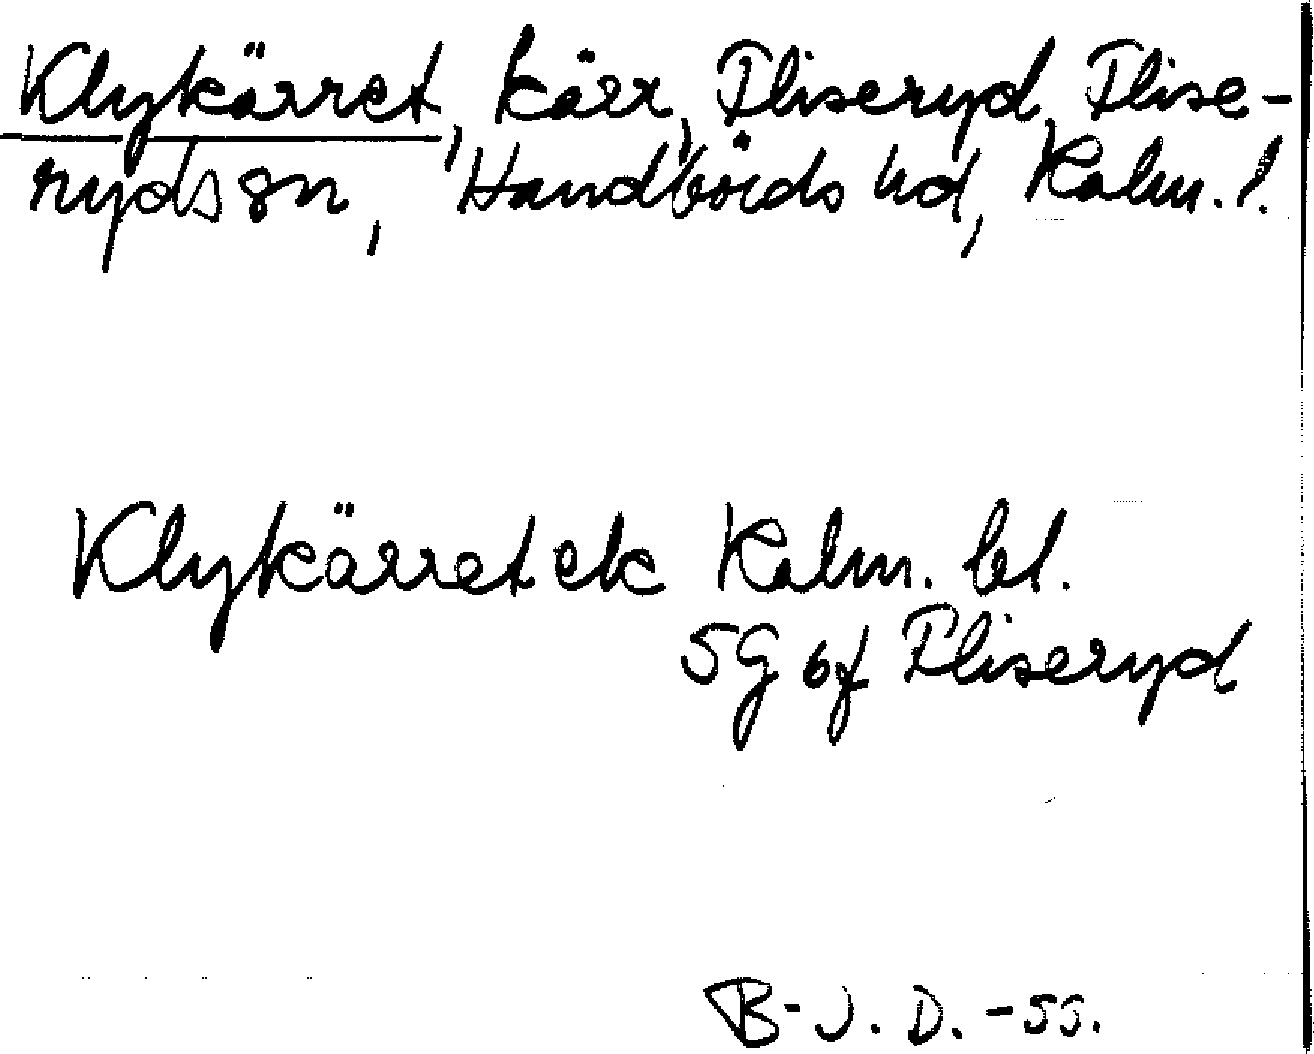 Klykärret, kärr, Fliseryd, Flise-
ryds sn, Handbörds hd, Kalm. l.
Klykärret ek Kalm. bl.
5G bf Fliseryd
B-J. D. -55.